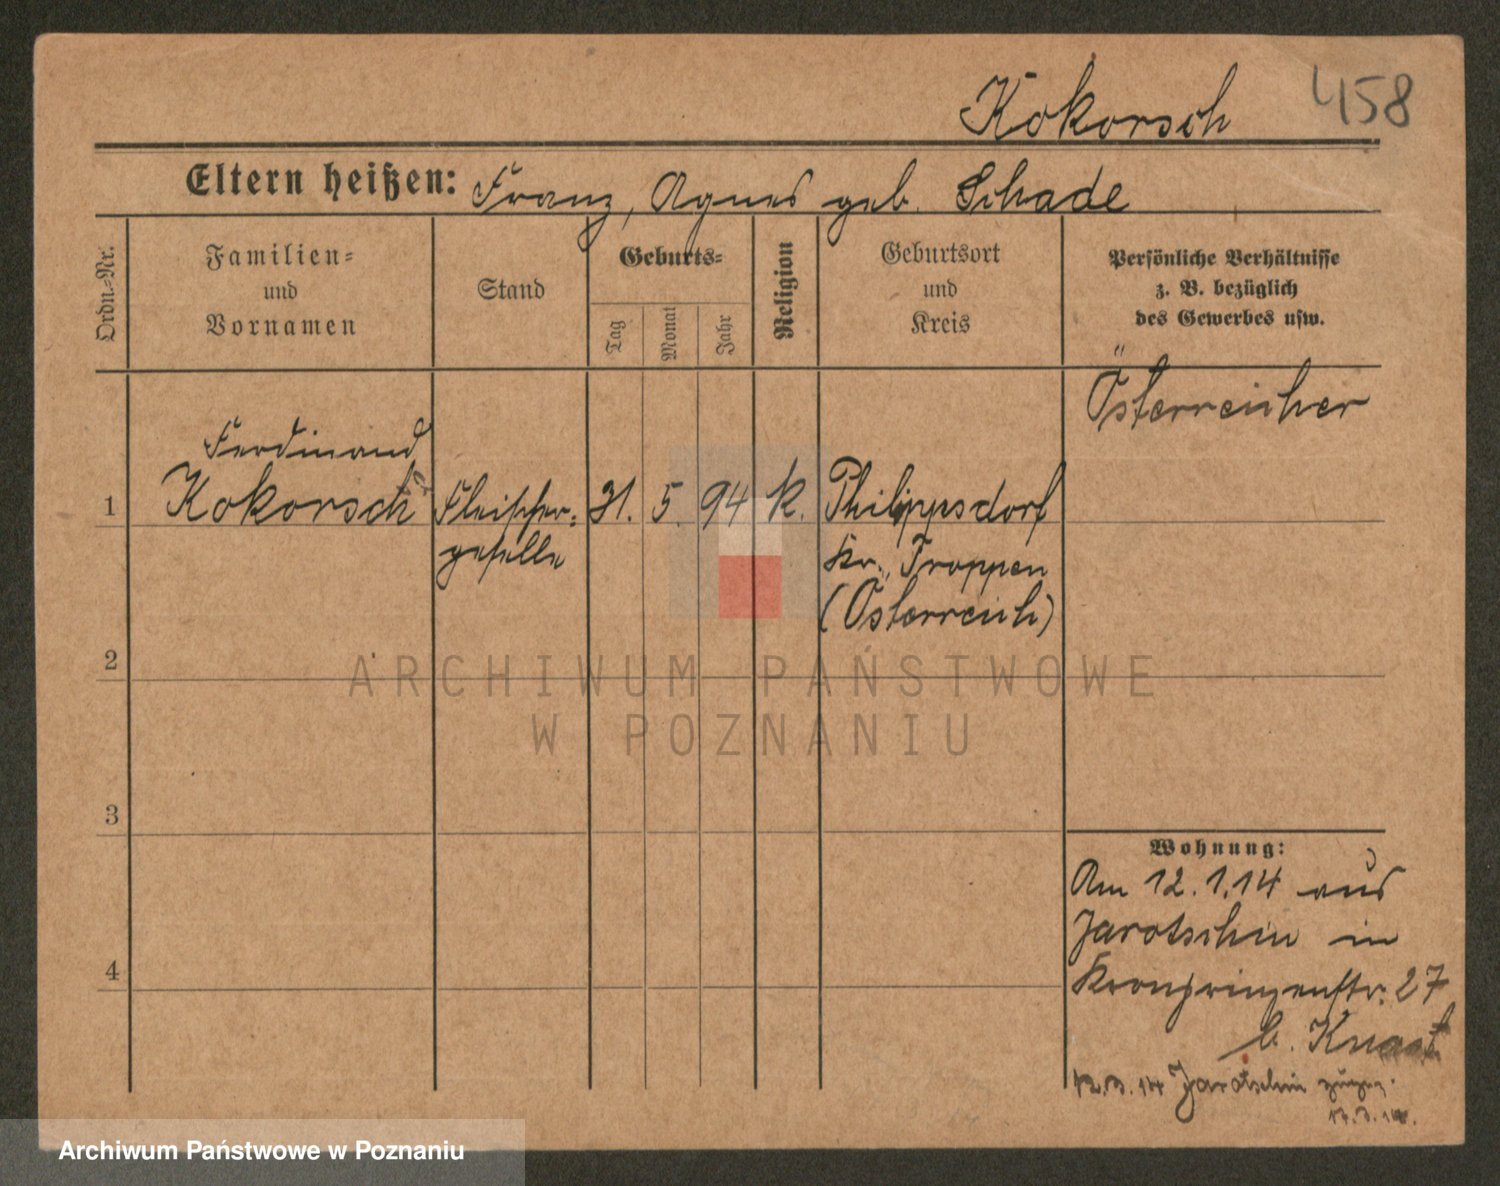 Kokorsch
458
Eltern heißen: Franz, Agnes geb. Schade
Ordn.-Nr.
Familien-
und
Vornamen
Stand
Geburts-
Tag
Monat
Jahr
Religion
Geburtsort
und
Kreis
Persönliche Verhältnisse
z. B. bezüglich
des Gewerbes usw.
Österreicher
Ferdinand
1 Kokorsch Fleischer- 31. 5. 94 k. Philippsdorf
geselle Kr. Troppen
(Österreich)
2
3
4
Wohnung:
Am 12.1.14 aus
Jarotschin in
Kronprinzenstr. 27
b. Knast
12.3.14 Jarotschin
17.3.14.
ARCHIWUM PAŃSTWOWE
W POZNANIU
Archiwum Państwowe w Poznaniu